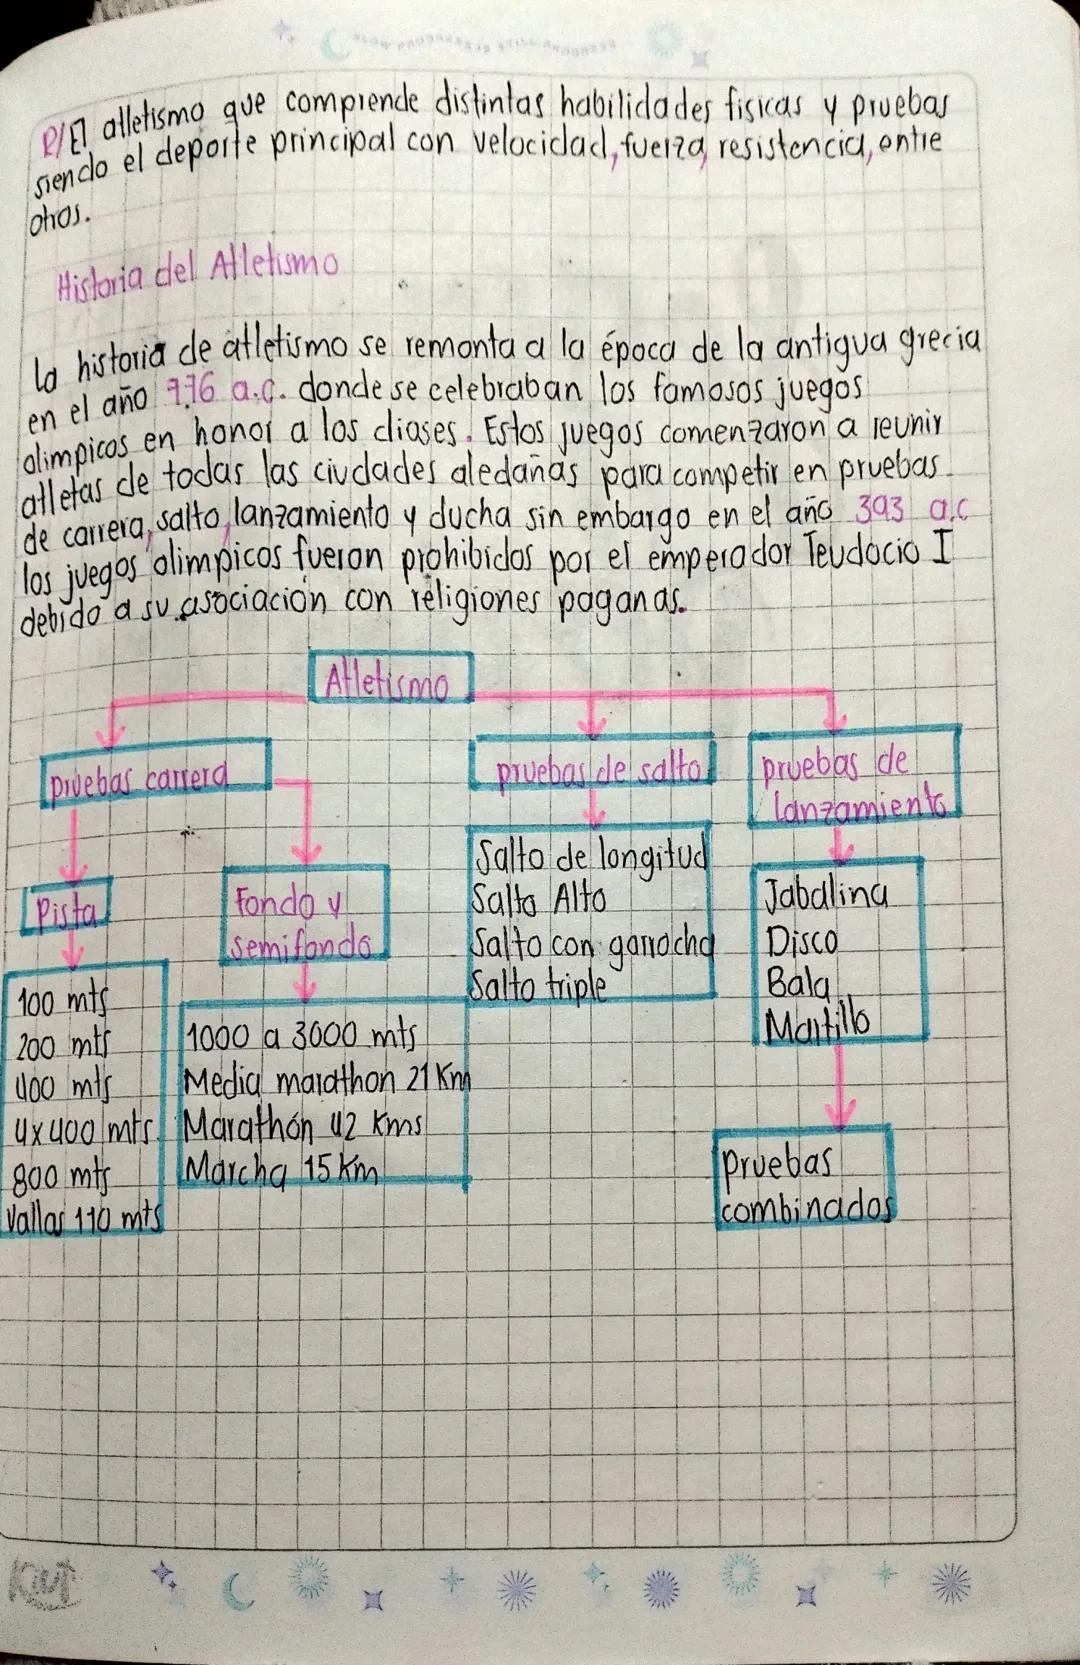 R/El atletismo que comprende distintas habilidades fisicas y pruebas
siendo el deporte principal con velocidad, fuerza, resistencia, entre
otros.
Historia del Atletismo
La historia de atletismo se remonta a la época de la antigua grecia
en el año 776 a.c. donde se celebraban los famosos juegos
olimpicos en honor a los diases. Estos juegos comenzaron a reunir
atletas de todas las ciudades aledañas para competir en pruebas
de carrera, salto, lanzamiento y ducha sin embargo en el año 393 a.c
los juegos olimpicos fueron prohibidos por el emperador Teudocio I
debido a su asociación con religiones paganas.
Atletismo
pruebas carrera
pruebas de salto
pruebas de
lanzamiento
Pista
Fondo y
semifondo
Salto de longitud
Salto Alto
Salto con garrocha
Salto triple
Jabalina
Disco
Bala
Martillo
100 mts
200 mts
400 mts
4x400 mts
800 mts
Vallas 110 mts
1000 a 3000 mts
Media marathon 21 Km
Marathón 42 Kms
Marcha 15 Km
pruebas
combinados